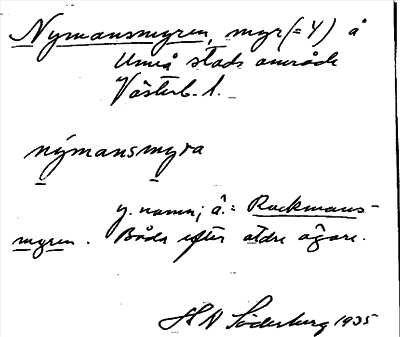 Nymansmyren, myr (=4) å
Umeå stads område
Västerb. l.
nýmansmyra
y. namn; ä.: Rackmans-
myren. Båda efter äldre ägare.
H N Söderberg 1935